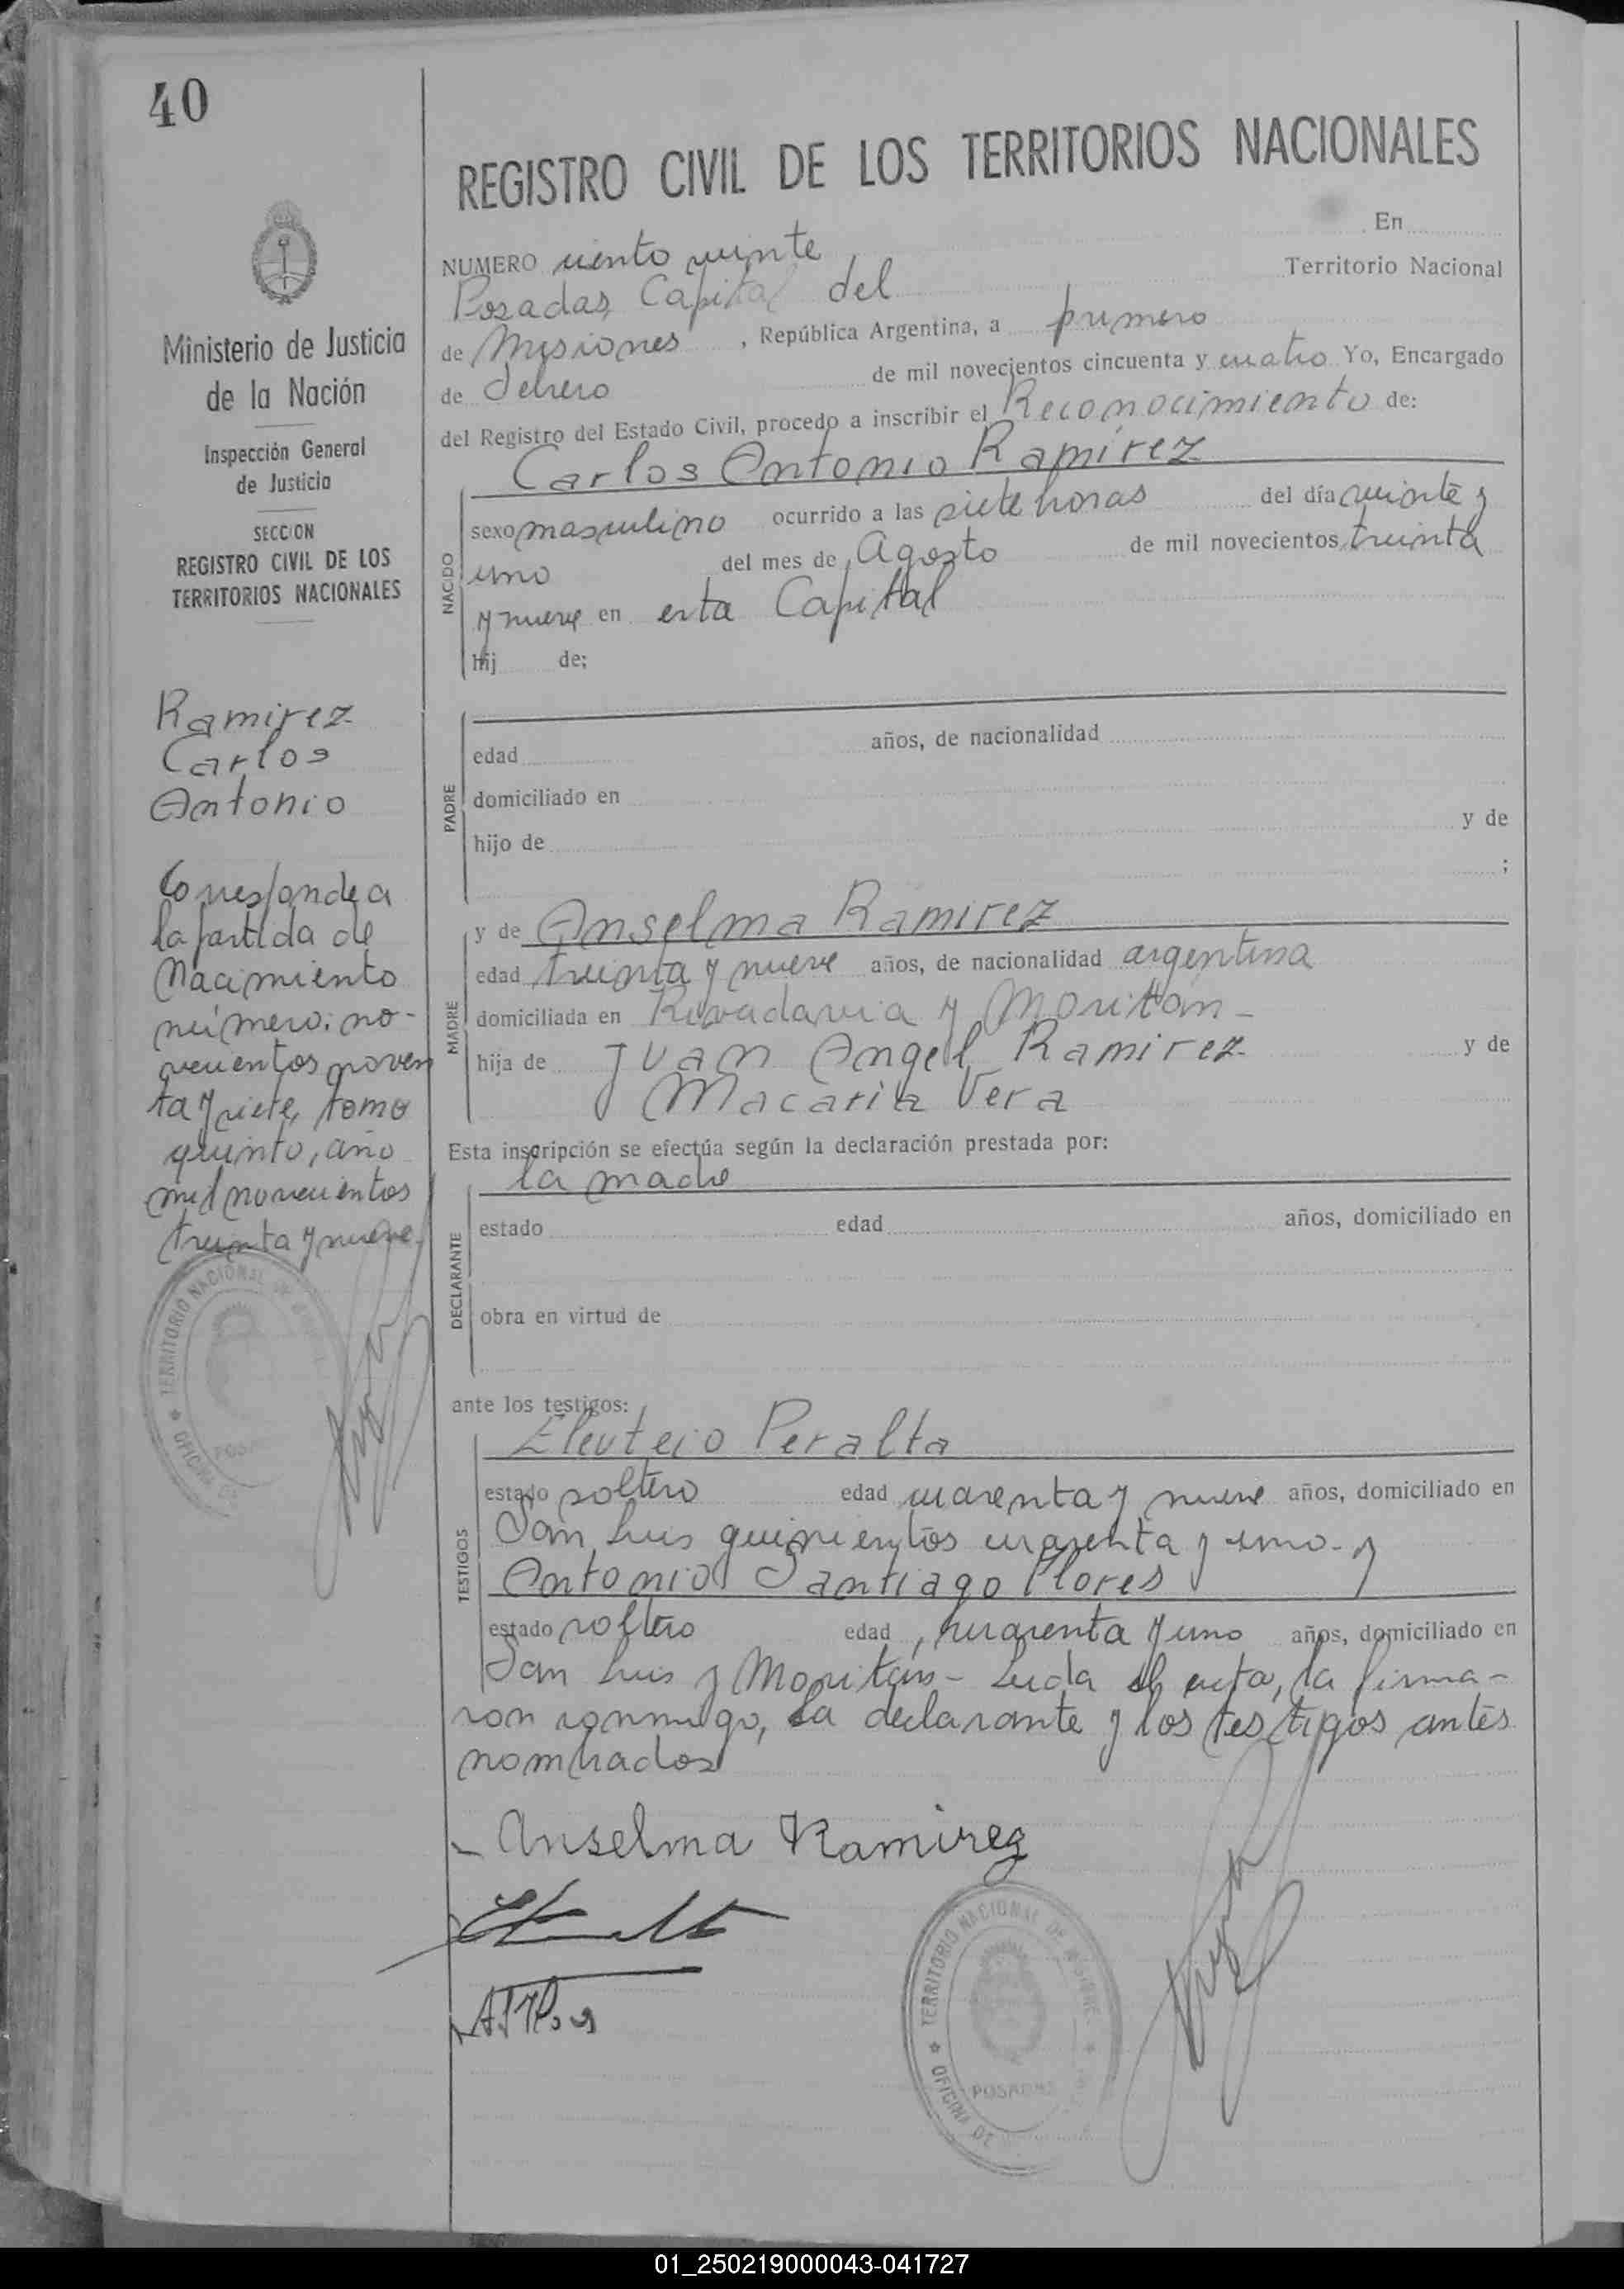 40
REGISTRO CIVIL DE LOS TERRITORIOS NACIONALES
En
NUMERO ciento veinte
Territorio Nacional
Posadas, Capital del
de Misiones, República Argentina, a primero
de Febrero de mil novecientos cincuenta y cuatro Yo, Encargado
del Registro del Estado Civil, procedo a inscribir el Reconocimiento de:
Carlos Antonio Ramírez
NACIDO
sexo masculino ocurrido a las siete horas del día veinte y
uno del mes de Agosto de mil novecientos treinta
y nueve en esta Capital
hij de;
PADRE
edad años, de nacionalidad
domiciliado en
hijo de y de
;
MADRE
y de Anselma Ramirez
edad treinta y nueve años, de nacionalidad argentina
domiciliada en Rivadavia y Moritán-
hija de Juan Angel Ramirez y de
Macaria Vera
Esta inscripción se efectúa según la declaración prestada por:
la madre
DECLARANTE
estado edad años, domiciliado en
obra en virtud de
ante los testigos:
TESTIGOS
Eleuterio Peralta
estado soltero edad cuarenta y nueve años, domiciliado en
San Luis quinientos cuarenta y uno- y
Antonio Santiago Flores
estado soltero edad cuarenta y uno años, domiciliado en
San Luis y Moritán- Leida el acta, la firma-
ron conmigo, la declarante y los testigos antes
nombrados
Anselma Ramirez
TERRITORIO NACIONAL DE MISIONES
OFICINA DE
POSADAS
Ministerio de Justicia
de la Nación
Inspección General
de Justicia
SECCION
REGISTRO CIVIL DE LOS
TERRITORIOS NACIONALES
Ramirez
Carlos
Antonio
Corresponde a
la partida de
Nacimiento
número: no-
vecientos noven
ta y siete, tomo
quinto, año
mil novecientos
treinta y nueve.
TERRITORIO NACIONAL DE
OFICINA DE
POS
01_250219000043-041727